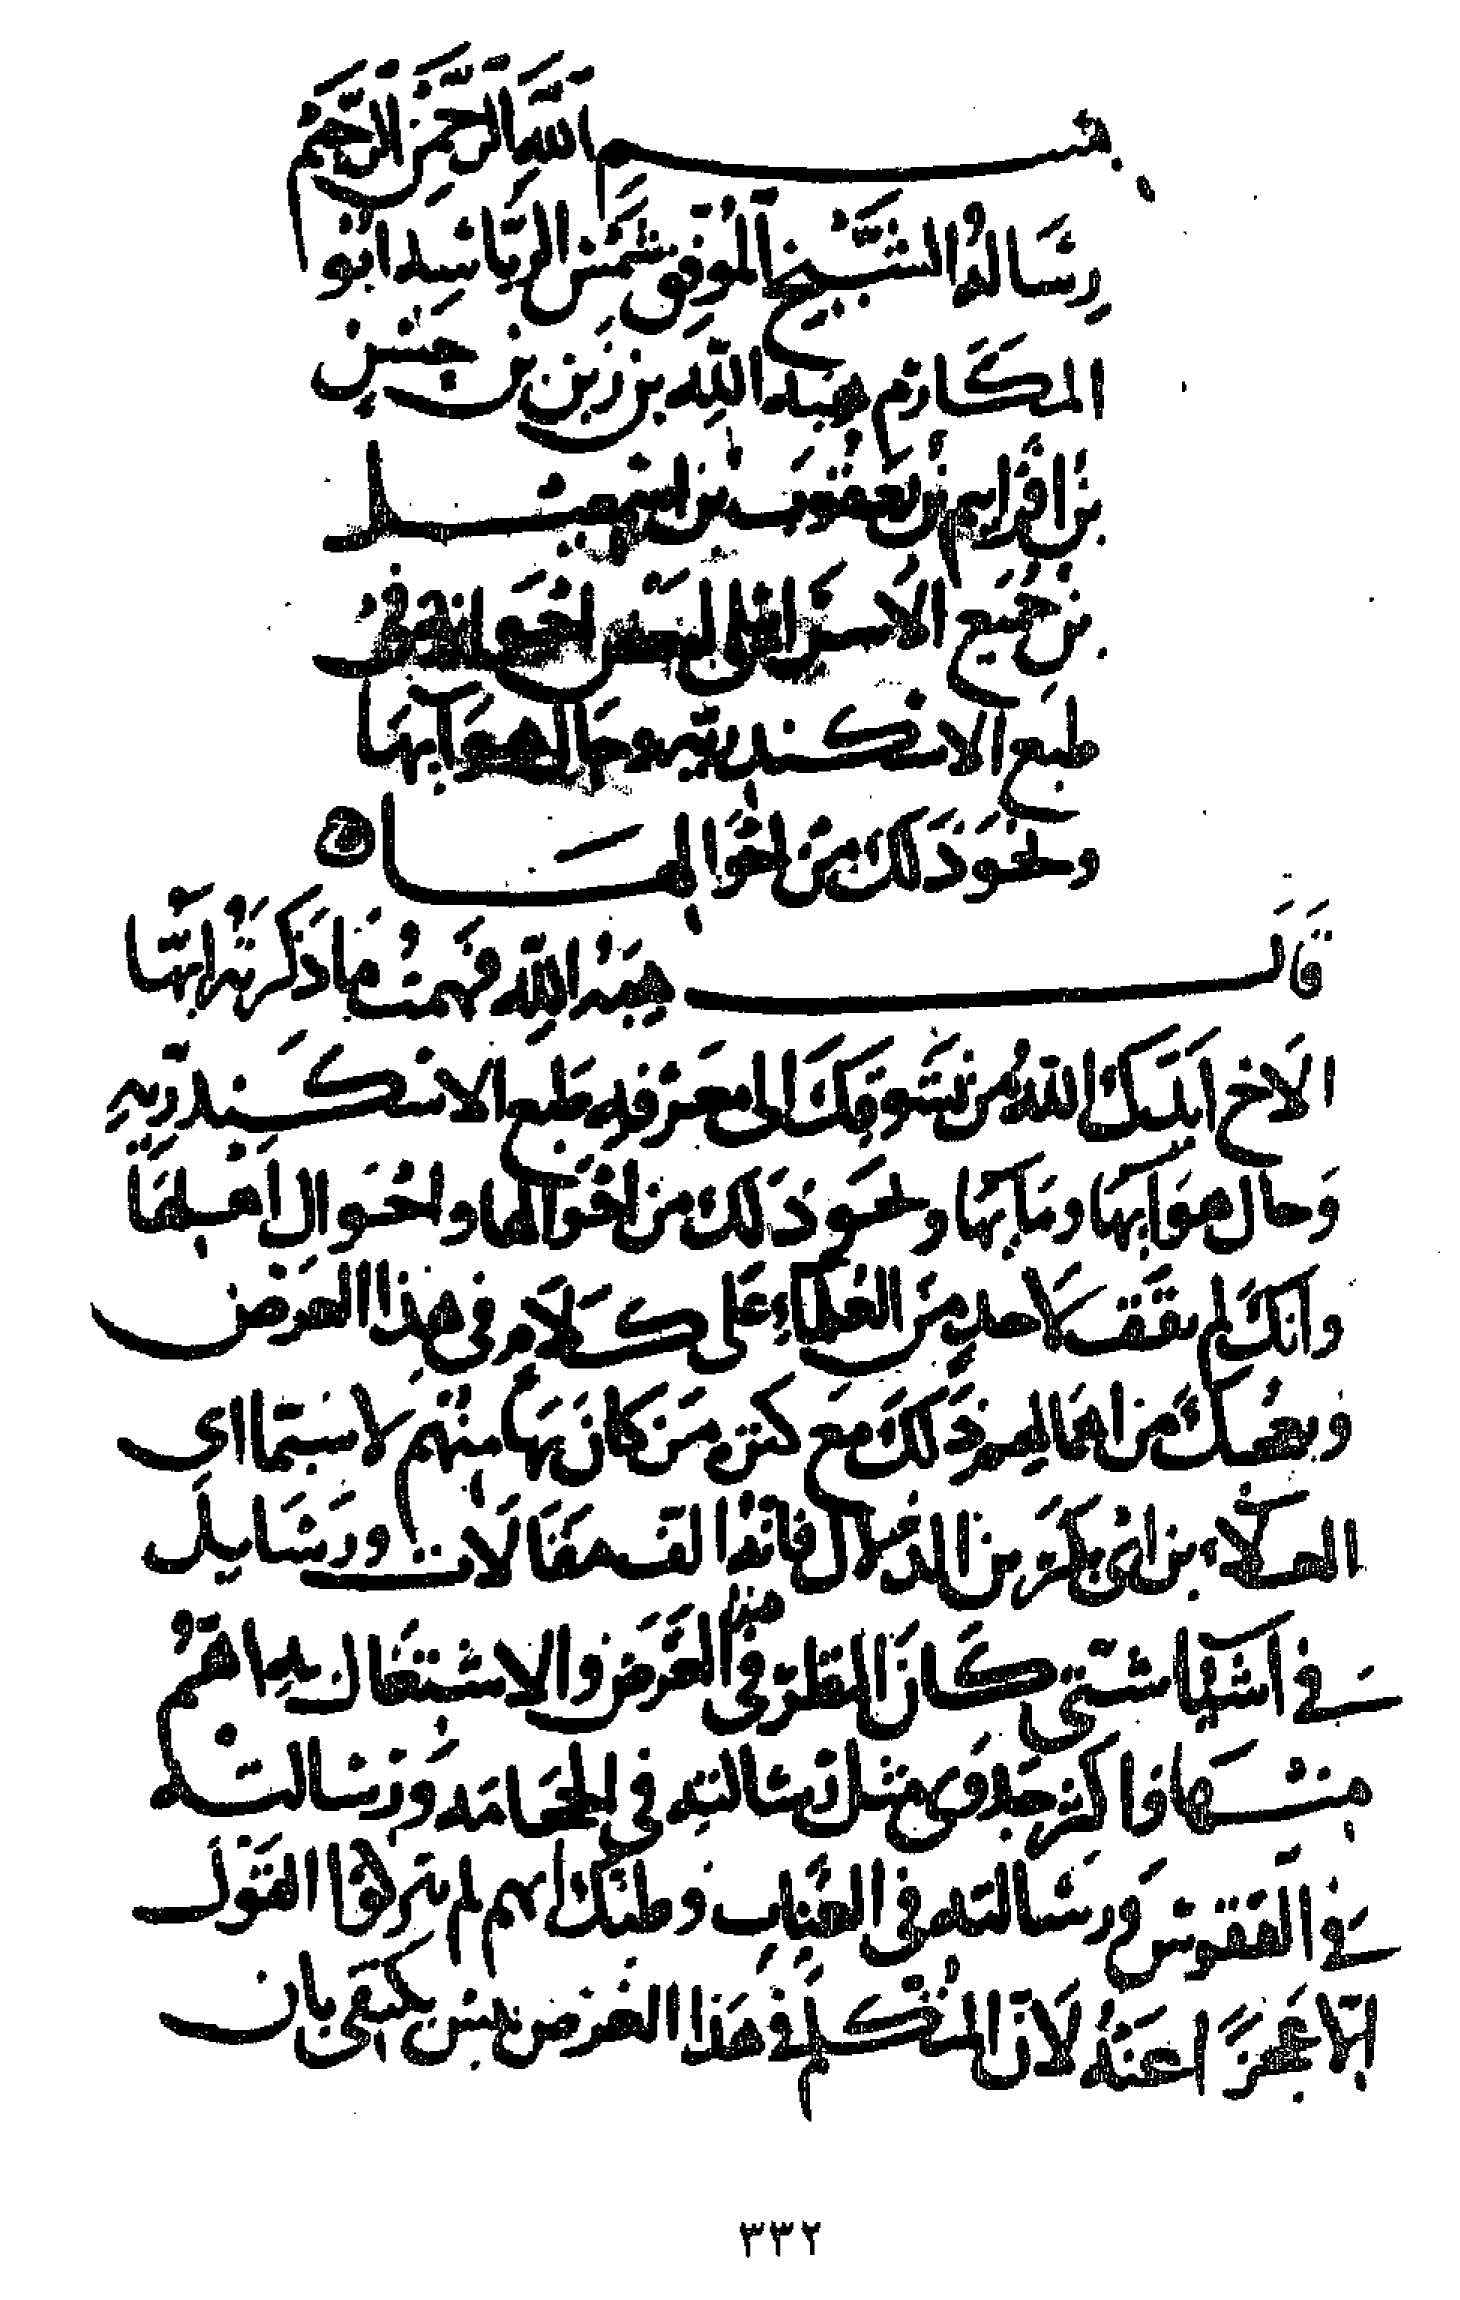 بسم الله الرحمن الرحيم
رسالة الشيخ الموفق شمس الرياسة ابو
المكارم هبة الله بن زين بن حسن
بن افرايم بن يعقوب بن اسمعيل
بن جميع الاسرائيلي لبعض اخوانه في
طبع الاسكندرية وحال هوآيها
ونحو ذلك من احوالها
قال هبة الله فهمت ما ذكرته ايها
الاخ ايدك الله من تشوقك الى معرفة طبع الاسكندرية
وحال هوايها ومايها ونحو ذلك من احوالها واحوال اهلها
وانك لم تقف لاحد من العلماء على كلام في هذا الغرض
وتعجبك من اغفالهم ذلك مع كثرة من كان بها منهم لاسيما ابي
العلاء بن ابي بكر بن الدخلال فانه الف مقالات ورسايل
في اشيا شتى كان النظر في هذا الغرض والاشتغال به اهم
منها واكثر جدوى مثل رسالته في الحجامة ورسالته
في الفقوس ورسالته في العناب وظنك انهم لم يتركوا القول
الا عجزا عنه لان المتكلم في هذا الغرض ليس يكتفي بان
٣٣٢